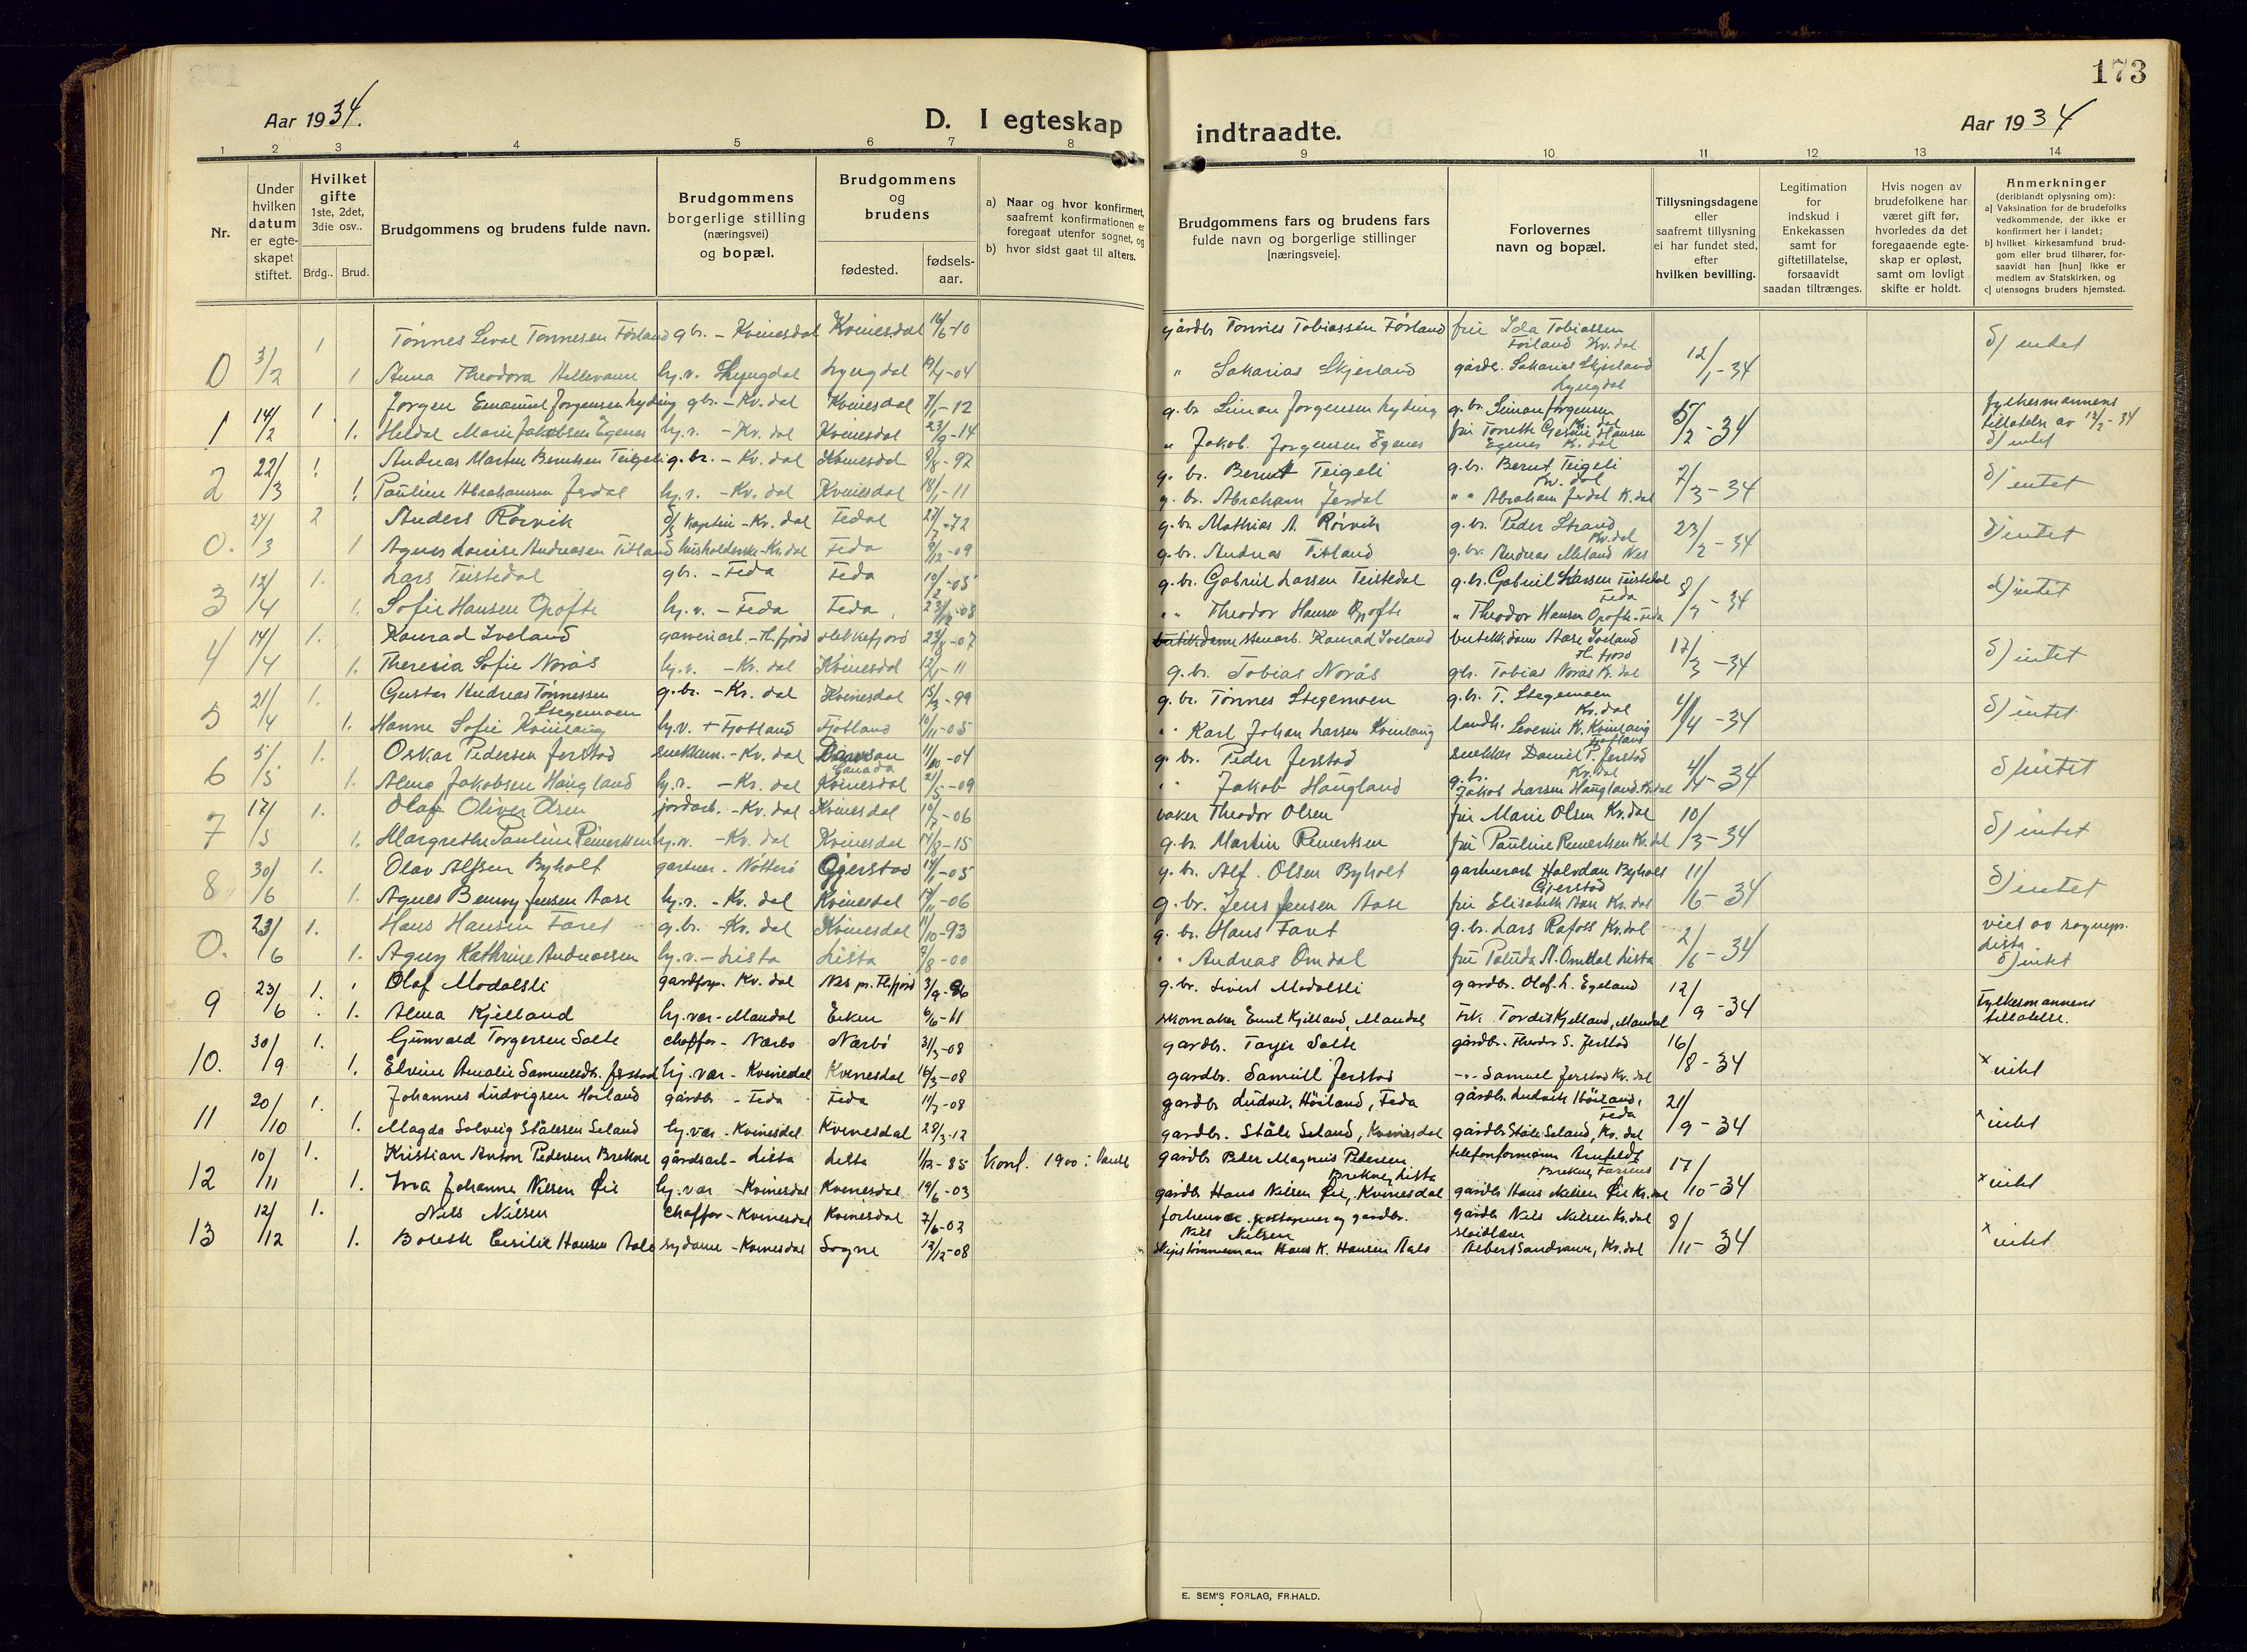 173
Aar 1934.
D. I egteskap indtraadte.
Aar 1934
1 2 3 4 5 6 7 8 9 10 11 12 13 14
Nr.
Under hvilken datum er egte-skapet stiftet.
Hvilket gifte
1ste, 2det, 3die osv..
Brdg.. Brud.
Brudgommens og brudens fulde navn.
Brudgommens borgerlige stilling (næringsvei) og bopæl.
Brudgommens og brudens
fødested. fødsels-aar.
a) Naar og hvor konfirmert, saafremt konfirmationen er foregaat utenfor sognet, og
b) hvor sidst gaat til alters.
Brudgommens fars og brudens fars fulde navn og borgerlige stillinger [næringsveie].
Forlovernes navn og bopæl.
Tillysningsdagene eller saafremt tillysning ei har fundet sted, efter hvilken bevilling.
Legitimation for indskud i Enkekassen samt for giftetillatelse, forsaavidt saadan tiltrænges.
Hvis nogen av brudefolkene har været gift før, hvorledes da det foregaaende egte-skap er opløst, samt om lovligt skifte er holdt.
Anmerkninger
(deriblandt oplysning om):
a] Vaksination for de brudefolks vedkommende, der ikke er konfirmert her i landet;
b] hvilket kirkesamfund brud-gom eller brud tilhører, for-saavidt han [hun] ikke er medlem av Statskirken, og
c] utensogns bruders hjemsted.
0 3/2 1 Tønnes Leval Tønnesen Førland gbr. - Kvinesdal Kvinesdal 16/6-10 gårdbr Tønnes Tobiassen Førland fru Ida Tobiassen Førland Kv. dal 12/1-34 b) intet
1 Anna Theodora Hellevann hj. v. Lyngdal Lyngdal 19/4-04 " Sakarias Skjerland gårdbr. Sakarias Skjerland Lyngdal
1 14/2 1. Jørgen Emanuel Jørgensen Lyding gbr. - Kv. dal Kvinesdal 8/1-12 g.br. Simon Jørgensen Lyding g.br. Simon Jørgensen Kv. dal 5/2-34 fylkesmannens tillatelse av 12/2-34
1. Heldal Marie Jakobsen Egenes hj. v. - Kv. dal Kvinesdal 23/9-14 " Jakob Jørgensen Egenes fru Tonette Hansen Egenes Kv. dal b) intet
2 22/3 1 Andreas Martin Berntsen Teigeli g.br. - Kv. dal Kvinesdal 8/8-92 g. br. Bernt Teigeli g.br. Bernt Teigeli Kv. dal 7/3-34 b) intet
1 Pauline Abrahamsen Jerdal hj. v. - Kv. dal Kvinesdal 18/1-11 g. br. Abraham Jerdal " " Abraham Jerdal K. dal
0. 24/3 2 Anders Rørvik kaptein - Kv. dal Fedal 28/7-72 g.br. Mathias A. Rørvik g.br. Peder Strand Kv. dal 23/2-34 b) intet
1 Agnes Louise Andreasen Titland husholderske - Kv. dal Feda 9/2-09 g.br. Andreas Titland g.br. Andreas Meland Nes
3 12/4 1. Lars Teistedal gbr. - Feda Feda 10/2-05 g.br. Gabriel Larsen Teistedal g.br. Gabriel Larsen Teistedal Feda 8/3-34 b) intet
1. Sofie Hansen Opofte hj. v. - Feda Feda 23/12-08 " " Theodor Hansen Opofte " Theodor Hansen Opofte - Feda
4 14/4 1. Konrad Iveland garveriarb. - Fl. fjord Flekkefjord 23/8-07 stenarb. Konrad Iveland butikkdame Aase Iveland Fl. fjord 17/3-34 b) intet
1. Theresia Sofie Norås hj. v. - Kv. dal Kvinesdal 12/1-11 g.br. Tobias Norås gbr. Tobias Norås Kv. dal
5 21/4 1. Gustav Andreas Tønnessen Stegemoen g.br. - Kv. dal Kvinesdal 15/3-99 g.br. Tønnes Stegemoen g.br. T. Stegemoen Kv. dal 4/4-34 b) intet
1. Hanne Sofie Kvinlaug hj. v. + Fjotland Fjotland 10/11-05 " Karl Johan Larsen Kvinlaug landh. Severin K. Kvinlaug Fjotland
6 5/5 1. Oskar Pedersen Jerstad snekkem. - Kv. dal Dawson Canada 11/10-04 g. br. Peder Jerstad snekker Daniel P. Jerstad Kv. dal 4/4-34 b) intet
1. Alma Jakobsen Haugland hj. v. - Kv. dal Kvinesdal 21/5-09 " Jakob Haugland g.br. Jakob Larsen Haugland Kv. dal
7 17/5 1. Olaf Oliver Olsen jordarb. - Kv. dal Kvinesdal 10/7-06 baker Theodor Olsen fru Marie Olsen Kv. dal 10/3-34 b) intet
1. Margrethe Pauline Reinertsen hj. v. - Kv. dal Kvinesdal 14/8-15 g.br. Martin Reinertsen fru Pauline Reinertsen Kv. dal
8 30/6 1. Olav Alfsen Byholt gartner - Nøtterø Gjerstad 14/1-05 g.br. Alf. Olsen Byholt gartnerarb Halvdan Byholt Gjerstad 11/6-34 b) intet
1. Agnes Benny Jensen Aase hj. v. - Kv. dal Kvinesdal 17/11-06 g.br. Jens Jensen Aase fru Elisabeth Aase Kv. dal
0. 23/6 1. Hans Hansen Faret g.br. - Kv. dal Kvinesdal 11/10-93 g. br. Hans Faret g.br. Lars Rafoss Kv. dal 2/6-34 viet av sognepr. Lista
1. Agny Kathrine Andreassen hj. v. - Lista Lista 9/8-00 " " Andreas Omdal fru Paluda A. Omdal Lista b) intet
9 23/6 1. Olaf Modalsli gardforp. Kv. dal Nes pr. Fl.fjord 3/9-96 g.br. Sivert Modalsli gardbr. Olaf. L. Egeland 12/9-34 Fylkesmannens tillatelse.
1. Alma Kjelland hj. vær - Mandal Eiken 6/6-11 skomaker Emil Kjelland, Mandal Frk Tordis Kjelland, Mandal
10. 30/9 1. Gunvald Torgersen Salte chaffør - Nærbø Nærbø 31/3-08 gardbr. Torger Salte gårdbr. Theodor S. Jerstad 16/8-34 x intet
1. Elvine Amalie Samuelsdtr. Jerstad hj. vær - Kvinesdal Kvinesdal 16/3-08 gardbr. Samuel Jerstad -"- Samuel Jerstad Kv. dal
11 20/10 1. Johannes Ludvigsen Høiland gårdbr - Feda Feda 11/7-08 gardbr Ludvik Høiland, Feda gårdbr. Ludvik Høiland, Feda 21/9-34 x intet
1. Magda Solveig Stålesen Seland hj. vær - Kvinesdal Kvinesdal 28/3-12 gardbr. Ståle Seland, Kvinesdal gårdbr Ståle Seland, Kv. dal
12 10/11 1. Kristian Anton Pedersen Brekne gårdsarb - Lista Lista 1/12-85 Konf. 1900 i Vanse gardbr Peder Magnus Pedersen Brekne, Lista telefonformann Arnfeldt Brekne, Farsund 17/10-34 x intet
1. Ina Johanne Nilsen Øie hj. vær - Kvinesdal Kvinesdal 19/6-03 gårdbr Hans Nilsen Øie, Kvinesdal gårdbr Hans Nilsen Øie Kv. dal
13 12/12 1. Nils Nilsen chaffør - Kvinesdal Kvinesdal 7/6-02 forhenvær. postaapner og gardbr. Nils Nilsen gårdbr Nils Nilsen Kv. dal 8/11-34 x intet
1. Bolette Cesilie Hansen Aale sydame - Kvinesdal Søgne 12/12-08 skipstømmerman Hans K. Hansen Aale sløidlærer Albert Sandvann, Kv. dal
E. SEM'S FORLAG, FR.HALD.